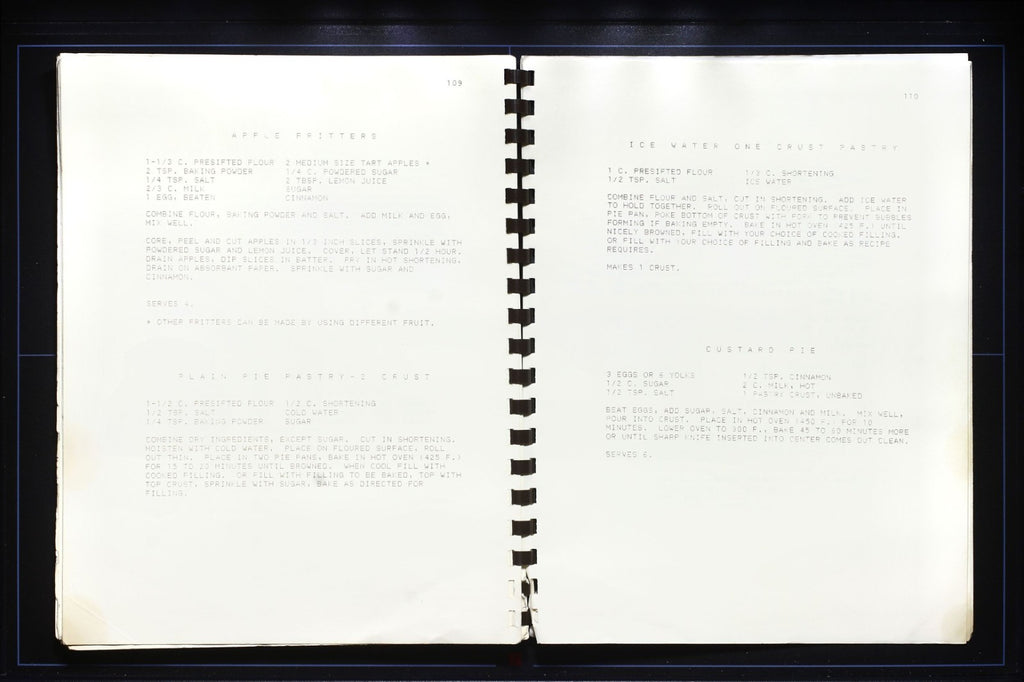 109
APPLE FRITTERS
1-1/3 C. PRESIFTED FLOUR 2 MEDIUM SIZE TART APPLES *
2 TSP. BAKING POWDER 1/4 C. POWDERED SUGAR
1/4 TSP. SALT 2 TBSP. LEMON JUICE
2/3 C. MILK SUGAR
1 EGG, BEATEN CINNAMON
COMBINE FLOUR, BAKING POWDER AND SALT. ADD MILK AND EGG,
MIX WELL.
CORE, PEEL AND CUT APPLES IN 1/3 INCH SLICES, SPRINKLE WITH
POWDERED SUGAR AND LEMON JUICE. COVER, LET STAND 1/2 HOUR.
DRAIN APPLES, DIP SLICES IN BATTER. FRY IN HOT SHORTENING.
DRAIN ON ABSORBANT PAPER. SPRINKLE WITH SUGAR AND
CINNAMON.
SERVES 4.
* OTHER FRITTERS CAN BE MADE BY USING DIFFERENT FRUIT.
PLAIN PIE PASTRY-2 CRUST
1-1/2 C. PRESIFTED FLOUR 1/2 C. SHORTENING
1/2 TSP. SALT COLD WATER
1/4 TSP. BAKING POWDER SUGAR
COMBINE DRY INGREDIENTS, EXCEPT SUGAR. CUT IN SHORTENING.
MOISTEN WITH COLD WATER. PLACE ON FLOURED SURFACE, ROLL
OUT THIN. PLACE IN TWO PIE PANS, BAKE IN HOT OVEN (425 F.)
FOR 15 TO 20 MINUTES UNTIL BROWNED. WHEN COOL FILL WITH
COOKED FILLING. OR FILL WITH FILLING TO BE BAKED, TOP WITH
TOP CRUST, SPRINKLE WITH SUGAR, BAKE AS DIRECTED FOR
FILLING.
110
ICE WATER ONE CRUST PASTRY
1 C. PRESIFTED FLOUR 1/3 C. SHORTENING
1/2 TSP. SALT ICE WATER
COMBINE FLOUR AND SALT, CUT IN SHORTENING. ADD ICE WATER
TO HOLD TOGETHER. ROLL OUT ON FLOURED SURFACE. PLACE IN
PIE PAN, POKE BOTTOM OF CRUST WITH FORK TO PREVENT BUBBLES
FORMING IF BAKING EMPTY. BAKE IN HOT OVEN (425 F.) UNTIL
NICELY BROWNED, FILL WITH YOUR CHOICE OF COOKED FILLING.
OR FILL WITH YOUR CHOICE OF FILLING AND BAKE AS RECIPE
REQUIRES.
MAKES 1 CRUST.
CUSTARD PIE
3 EGGS OR 6 YOLKS 1/2 TSP. CINNAMON
1/2 C. SUGAR 2 C. MILK, HOT
1/2 TSP. SALT 1 PASTRY CRUST, UNBAKED
BEAT EGGS, ADD SUGAR, SALT, CINNAMON AND MILK. MIX WELL,
POUR INTO CRUST. PLACE IN HOT OVEN (450 F.) FOR 10
MINUTES. LOWER OVEN TO 300 F., BAKE 45 TO 60 MINUTES MORE
OR UNTIL SHARP KNIFE INSERTED INTO CENTER COMES OUT CLEAN.
SERVES 6.